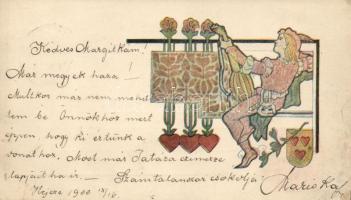 Kedves Margitkám!
Már megyek haza!
Multkor már nem mehet
tem be Önnökhöz mert
éppen hogy ki értünk a
vonathoz. Most már Tataza czimezze
lapjait ha ir. – Számtalanszor csokolja Mariska
1900